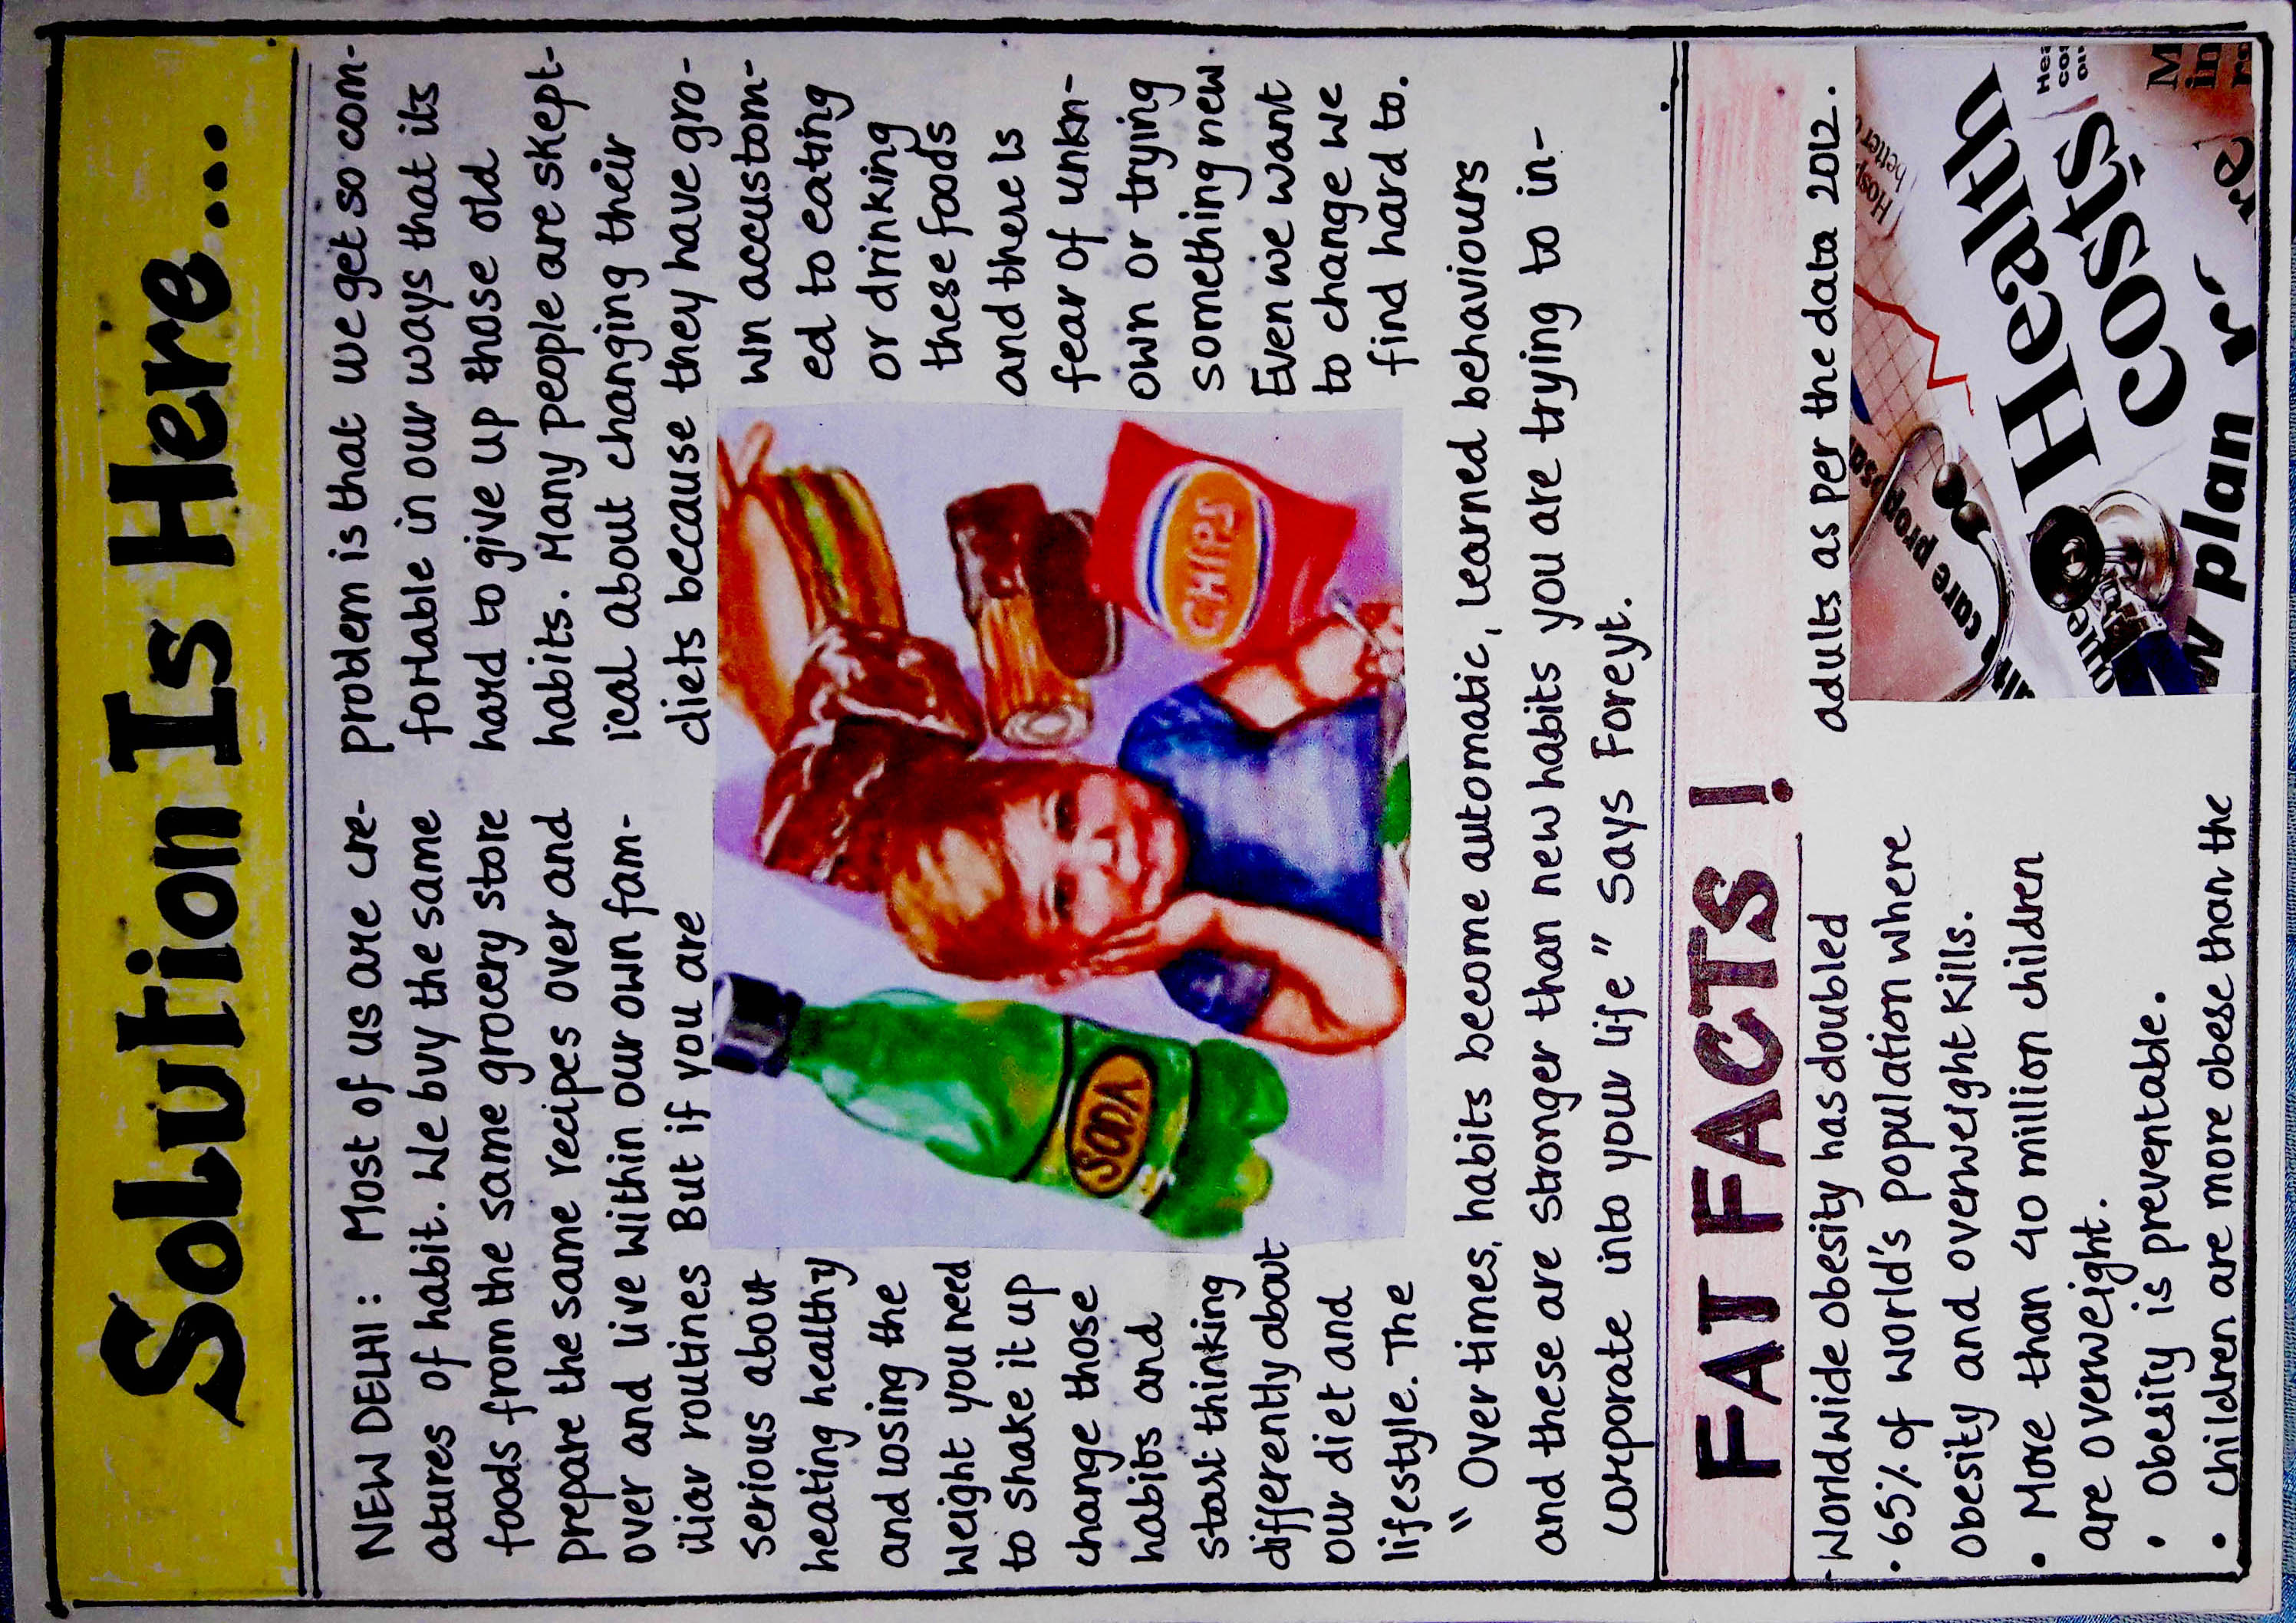 Solution Is Here...
NEW DELHI: Most of us are cre-
atures of habit. We buy the same
foods from the same grocery store
prepare the same recipes over and
over and live within our own fam-
iliar routines But if you are
serious about
heating healthy
and losing the
weight you need
to shake it up
change those
habits and
start thinking
differently about
our diet and
lifestyle. The
problem is that we get so com-
fortable in our ways that its
hard to give up those old
habits. Many people are skept-
ical about changing their
diets because they have gro-
wn accustom-
ed to eating
or drinking
these foods
and there is
fear of unkn-
own or trying
something new.
Even we want
to change we
find hard to.
SODA
CHIPS
"Over times, habits become automatic, learned behaviours
and these are stronger than new habits you are trying to in-
corporate into your life" says Foreyt.
FAT FACTS!
· Worldwide obesity has doubled
· 65% of world's population where
obesity and overweight kills.
• More than 40 million children
are overweight.
• Obesity is preventable.
• children are more obese than the
adults as per the data 2012.
Health
costs
care
plan